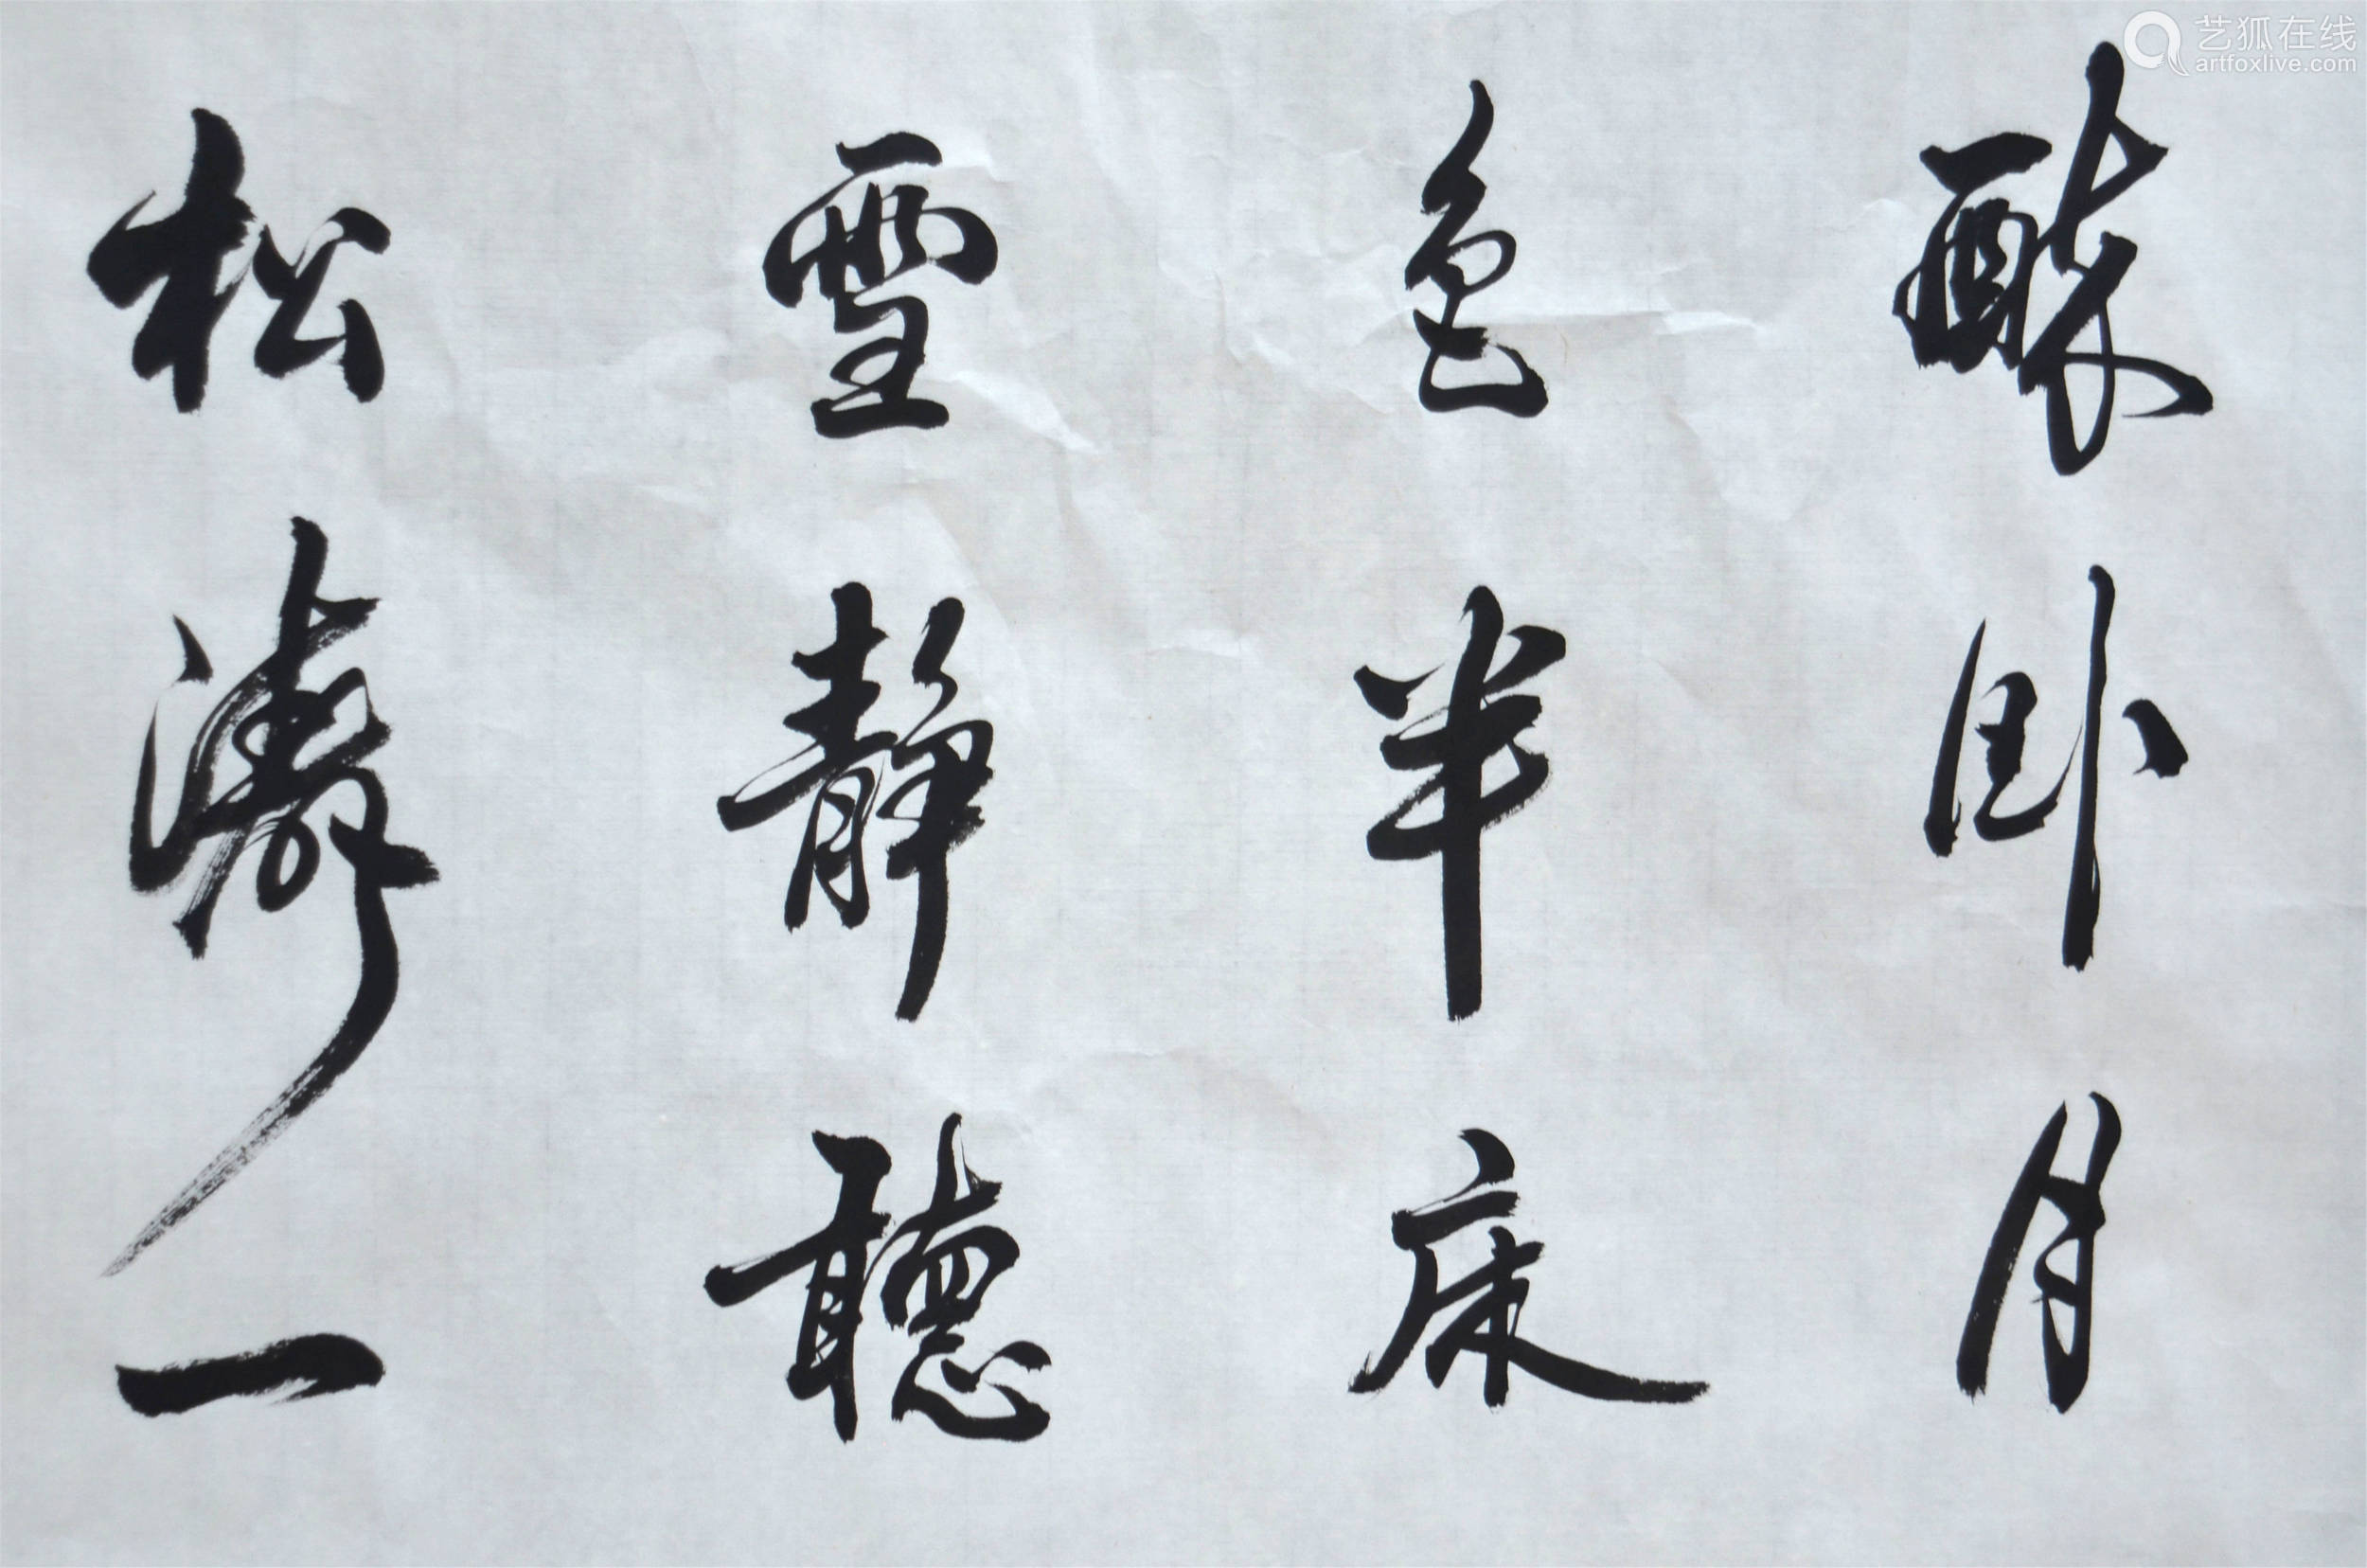 醉卧月
色半床
雪静聽
松濤一
艺狐在线
artfoxlive.com